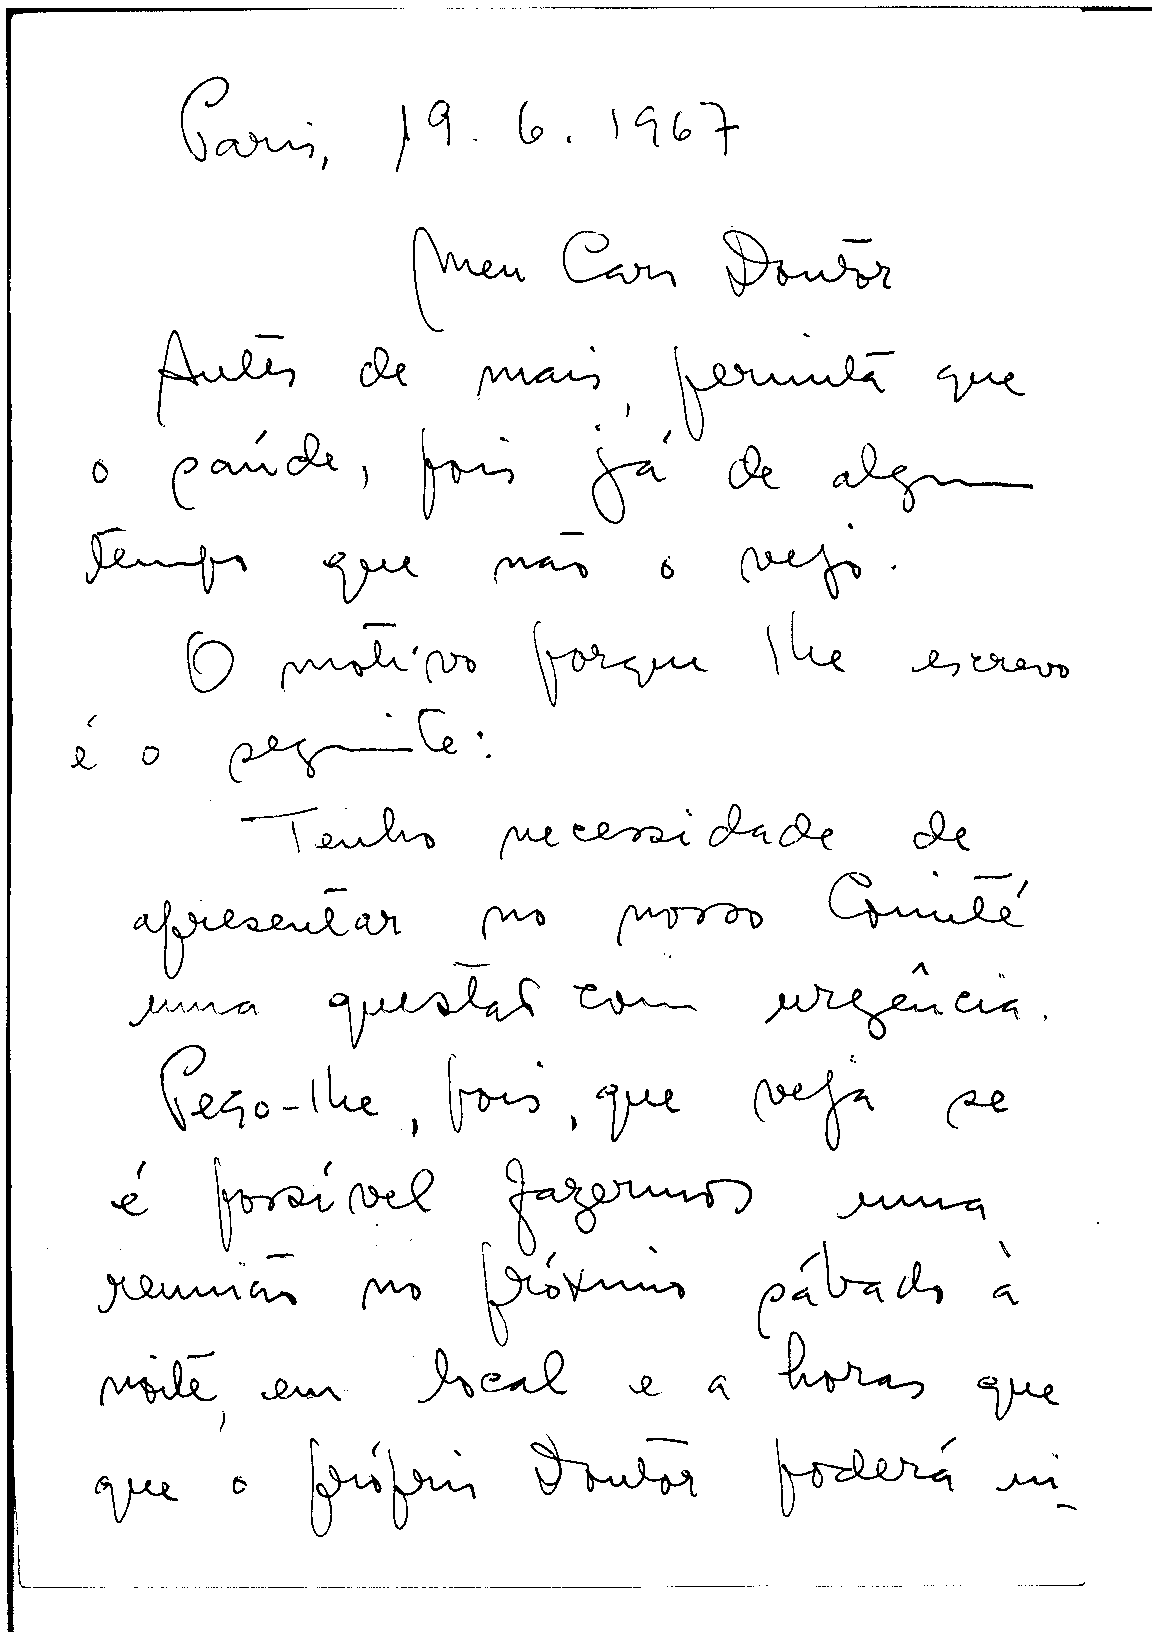 Paris, 19. 6. 1967
Meu Caro Doutor
Antes de mais, permita que
o saúde, pois já de algum
tempo que não o vejo.
O motivo porque lhe escrevo
é o seguinte:
Tenho necessidade de
apresentar no nosso Comité
uma questão com urgência.
Peço-lhe, pois, que veja se
é possível fazermos uma
reunião no próximo sábado à
noite, em local e a horas que
que o próprio Doutor poderá in-